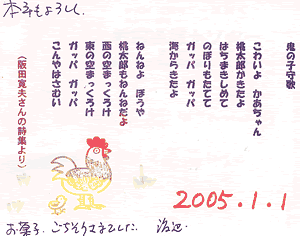 本年もよろしく
鬼の子守歌
こわいよ かあちゃん
桃太郎がきたよ
はちまきしめて
のぼりもたてて
ガッパ ガッパ
海からきたよ
ねんねよ ぼうや
桃太郎もねんねだよ
西の空まっくろけ
東の空まっくろけ
ガッパ ガッパ
こんやはさむい
(阪田寛夫さんの詩集より)
2005.1.1
お菓子、ごちそうさまでした。